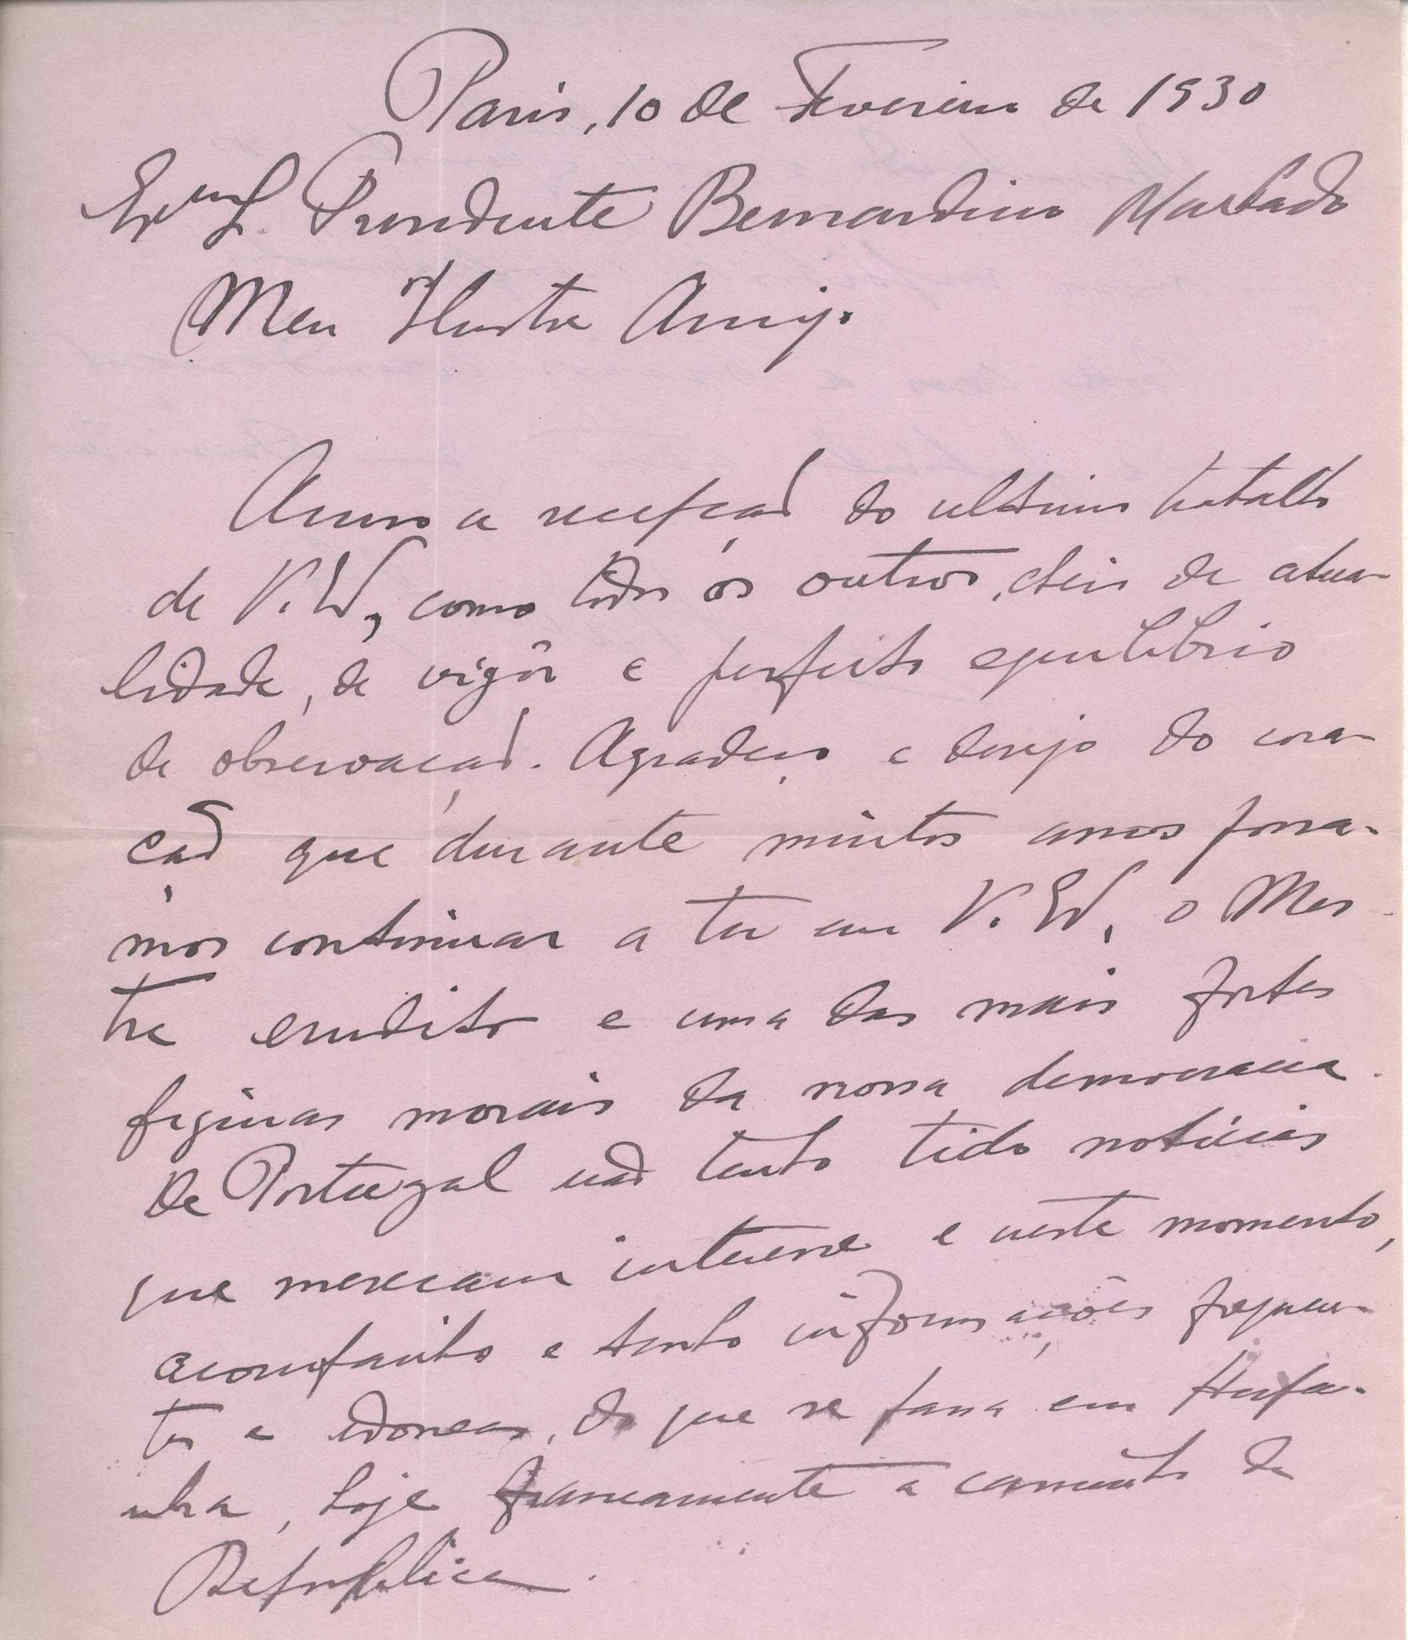 Paris, 10 de Fevereiro de 1930
Exmo Sr. Presidente Bernardino Machado
Meu Ilustre Amigo
Acuso a recepção do ultimo trabalho
de V. Exª, como todos os outros, cheio de atua-
lidade, de vigôr e perfeito equilibrio
de observação. Agradeço e desejo do cora-
ção que durante muitos anos possa-
mos continuar a ter em V. Exª, o Mes-
tre erudito e uma das mais fortes
figuras morais da nossa democracia.
De Portugal não tenho tido noticias
que mereçam interesse e neste momento,
acompanho e tenho informações frequen-
tes e idoneas, do que se passa em Hespa-
nha, hoje francamente a caminho da
Republica.